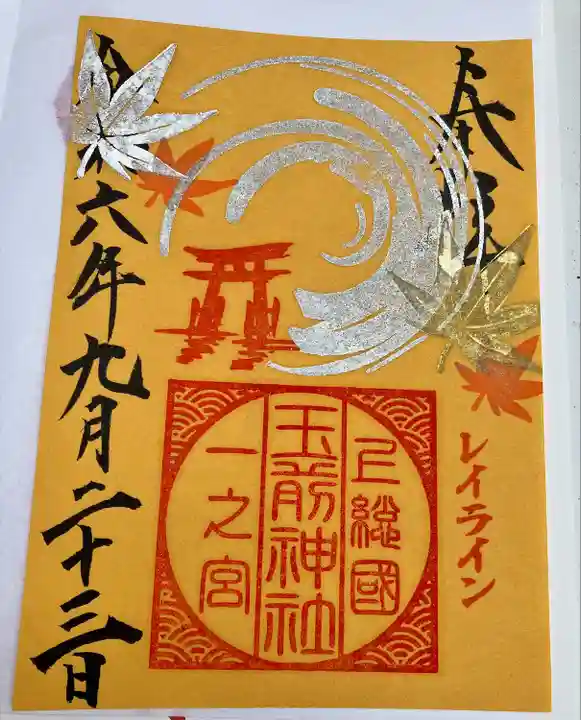 奉拝
レイライン
上総國
玉前神社
一之宮
令和六年九月二十三日